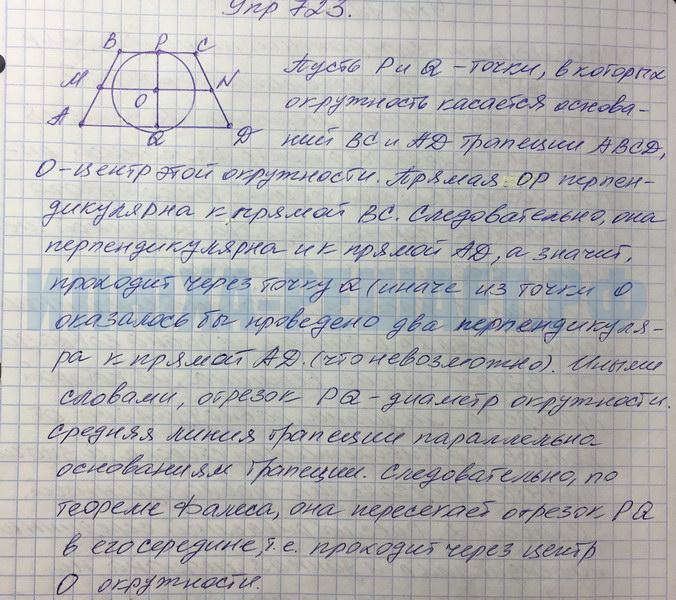 Упр 723.
B P C
M N
O
A Q D
Пусть P и Q – точки, в которых
окружность касается основа-
ний BC и AD трапеции ABCD,
O – центр этой окружности. Прямая OP перпен-
дикулярна к прямой BC. Следовательно, она
перпендикулярна и к прямой AD, а значит,
проходит через точку Q (иначе из точки O
оказалось бы проведено два перпендикуля-
ра к прямой AD. (что невозможно). Иными
словами, отрезок PQ – диаметр окружности.
Средняя линия трапеции параллельна
основаниям трапеции. Следовательно, по
теореме Фалеса, она пересекает отрезок PQ
в его середине, т.е. проходит через центр
O окружности.